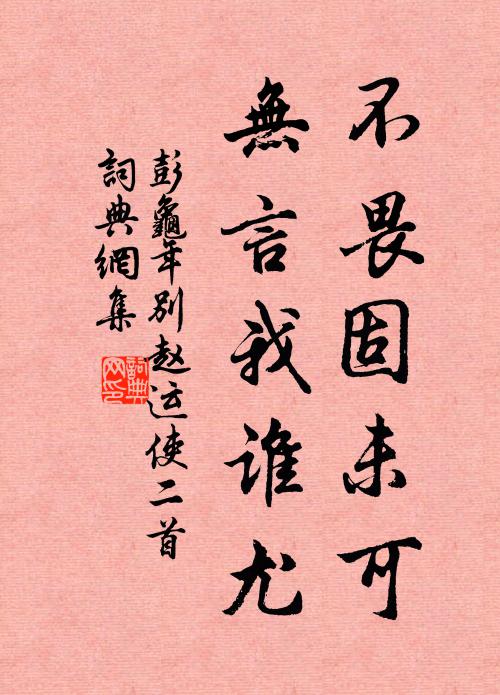 不畏固未可
無言我谁尤
彭龜年别赵运使二首
詞典網集
詞典網印